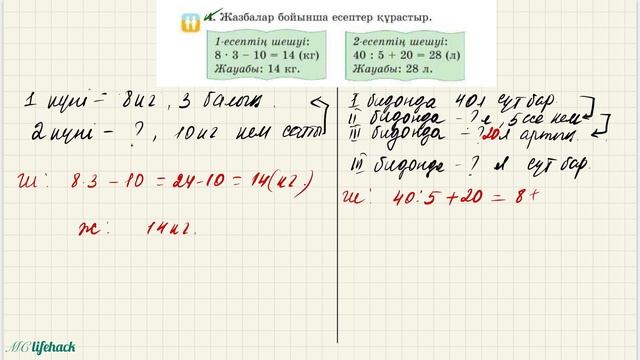 4. Жазбалар бойынша есептер құрастыр.
1-есептің шешуі:
8 · 3 – 10 = 14 (кг)
Жауабы: 14 кг.
2-есептің шешуі:
40 : 5 + 20 = 28 (л)
Жауабы: 28 л.
1 күні – 8 кг, 3 балық.
2 күні – ?, 10 кг кем сатты
Ш: 8·3 – 10 = 24-10 = 14(кг.)
Ж: 14 кг.
I бидонда 40л сүт бар.
II бидонда – ? л, 5 есе кем
III бидонда – ? 20л артық.
III бидонда – ? л сүт бар.
Ш: 40:5 + 20 = 8 +
MC lifehack